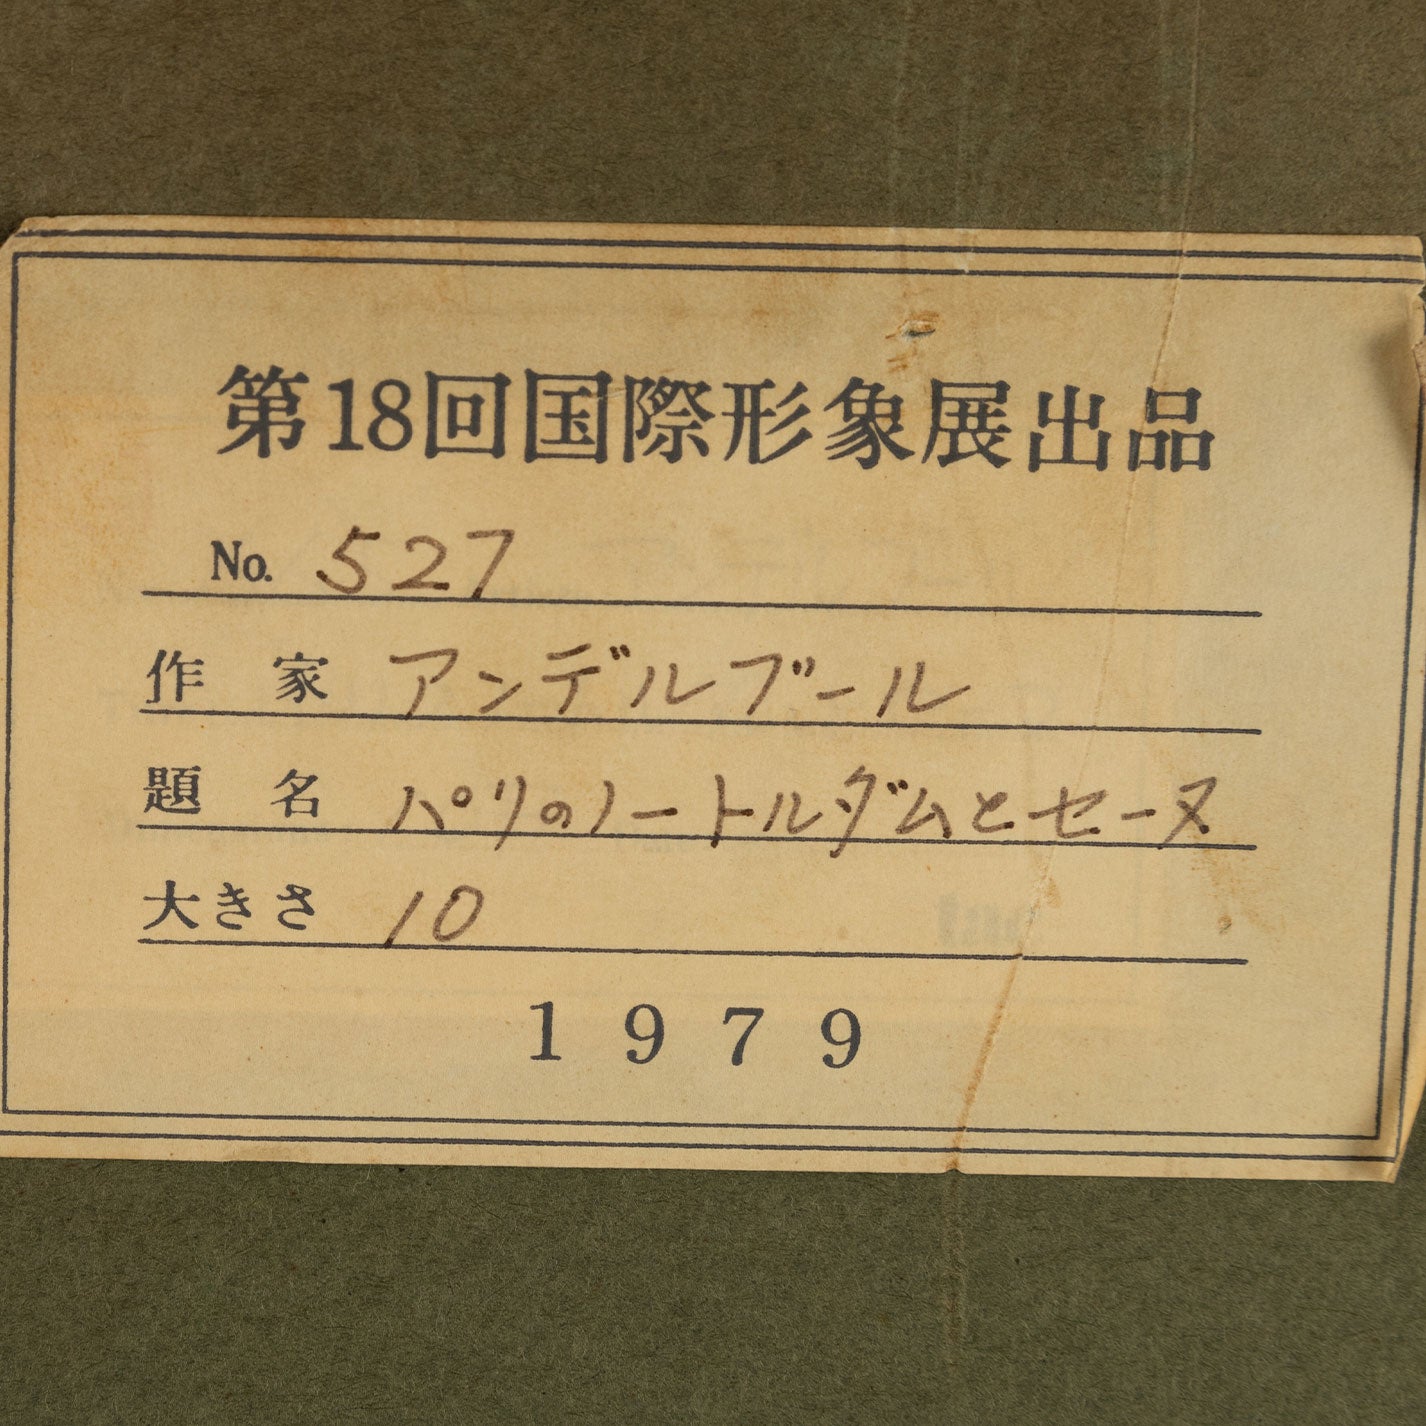 第18回国際形象展出品
No. 527
作家 アンデルブール
題名 パリのノートルダムとセーヌ
大きさ 10
1979